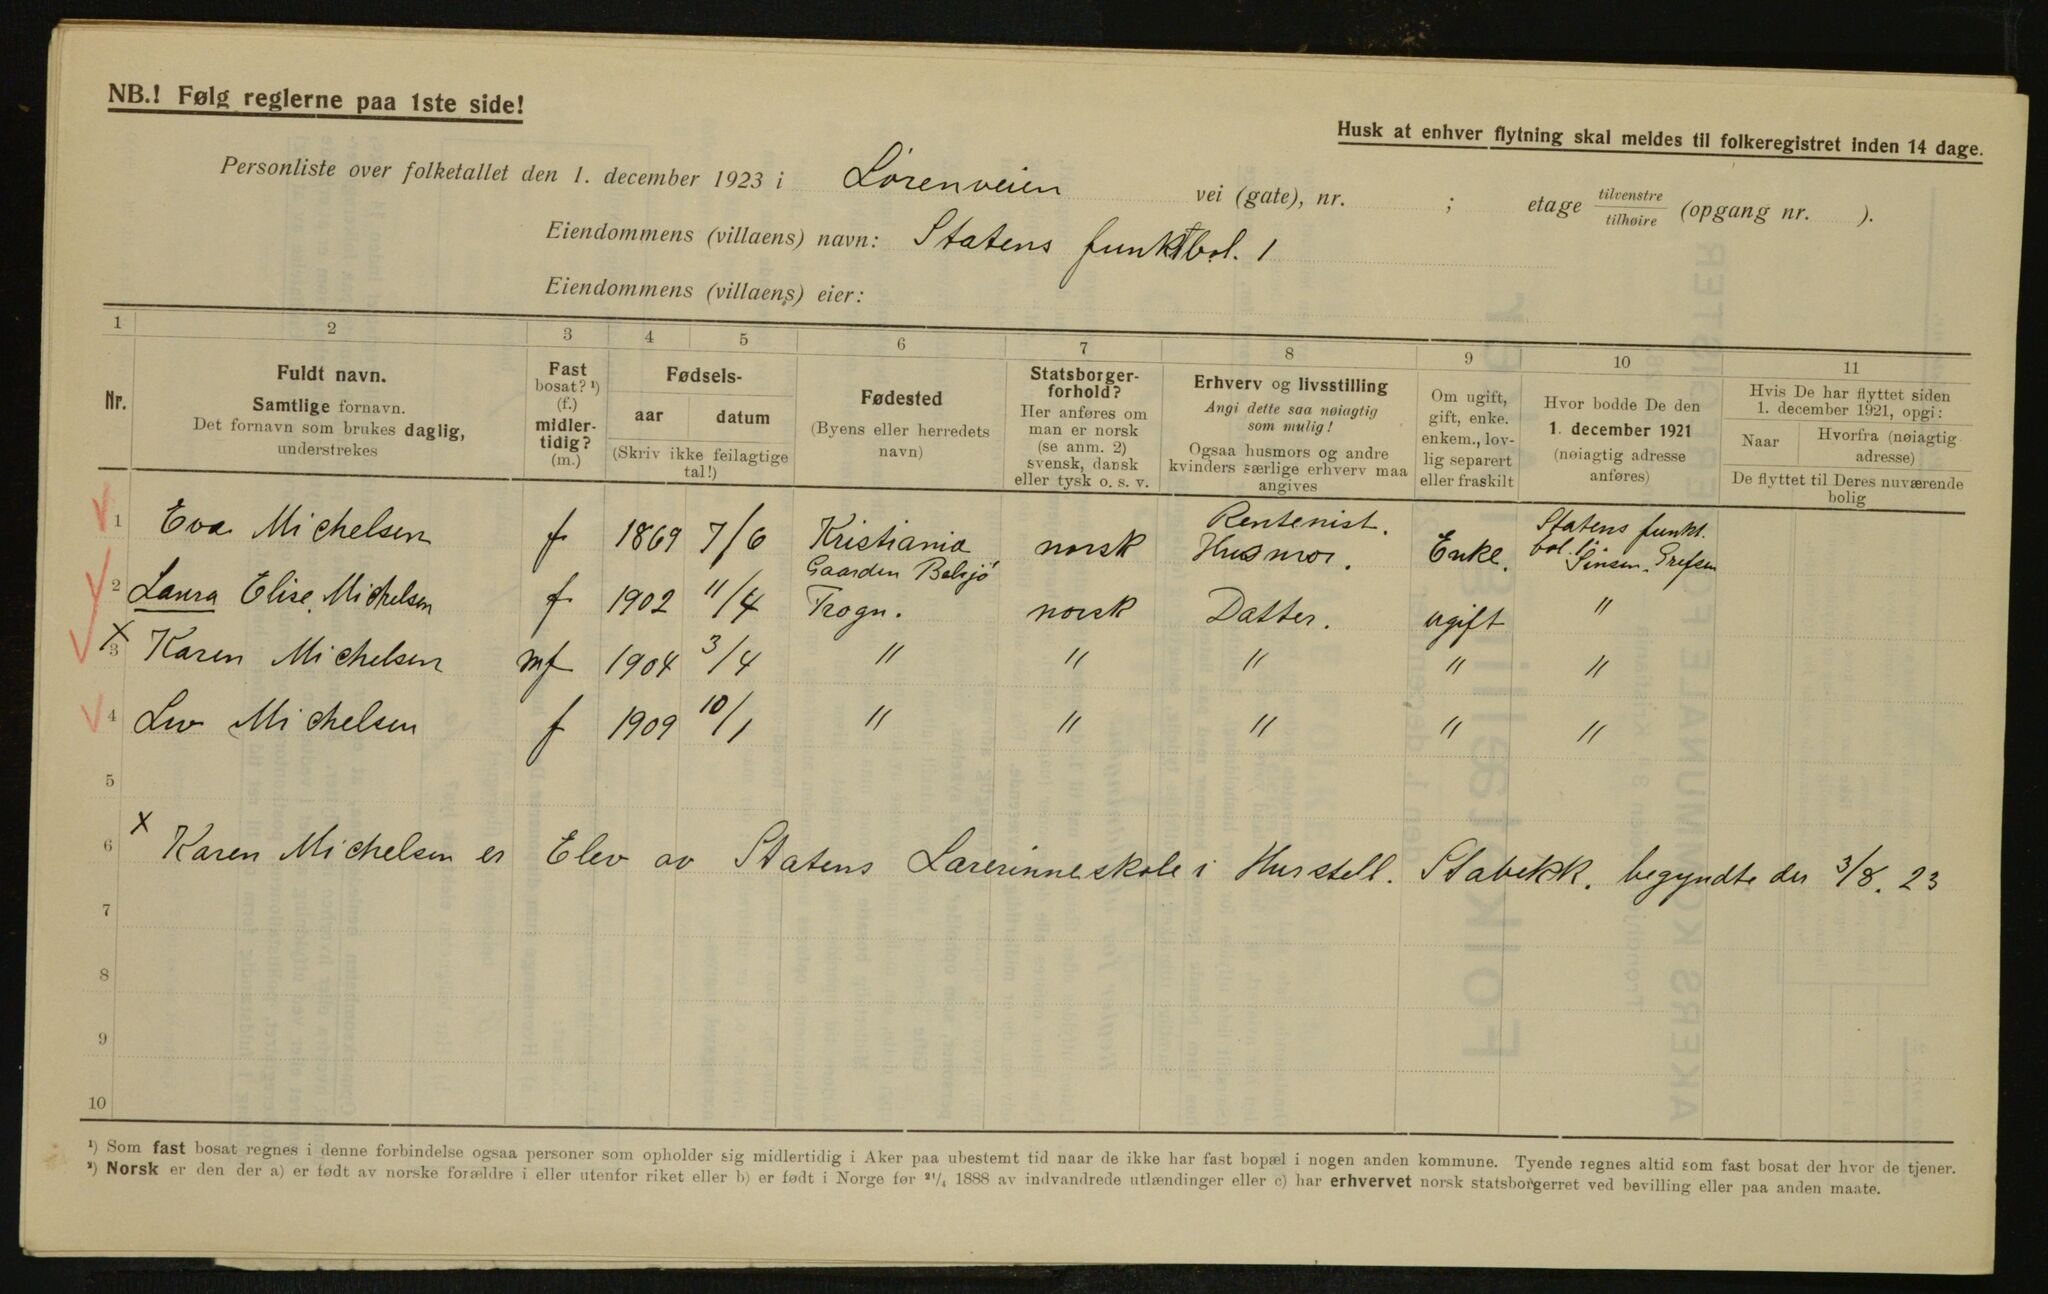 NB.! Følg reglerne paa 1ste side!
Husk at enhver flytning skal meldes til folkeregistret inden 14 dage.
Personliste over folketallet den 1. december 1923 i Lörenveien vei (gate), nr. ; etage tilvenstre tilhøire (opgang nr. ).
Eiendommens (villaens) navn: Statens funktbol. 1
Eiendommens (villaens) eier:
1 2 3 4 5 6 7 8 9 10 11
Nr.
Fuldt navn.
Samtlige fornavn.
Det fornavn som brukes daglig,
understrekes
Fast
bosat? ¹)
(f.)
midler-
tidig?
(m.)
Fødsels-
aar datum
(Skriv ikke feilagtige
tal!)
Fødested
(Byens eller herredets
navn)
Statsborger-
forhold?
Her anføres om
man er norsk
(se anm. 2)
svensk, dansk
eller tysk o. s. v.
Erhverv og livsstilling
Angi dette saa nøiagtig
som mulig!
Ogsaa husmors og andre
kvinders særlige erhverv maa
angives
Om ugift,
gift, enke.
enkem., lov-
lig separert
eller fraskilt
Hvor bodde De den
1. december 1921
(nøiagtig adresse
anføres)
Hvis De har flyttet siden
1. december 1921, opgi:
Naar Hvorfra (nøiagtig
adresse)
De flyttet til Deres nuværende
bolig
1 Eva Michelsen f 1869 7/6 Kristiania norsk Rentenist. Husmor. Enke. Statens funkt.
bol. 1 Sinsen. Grefsen
2 Laura Elise Michelsen f 1902 11/4 Gaarden Belsjö Frogn. norsk Datter. ugift "
x 3 Karen Michelsen mf 1904 3/4 " " " " "
4 Liv Michelsen f 1909 10/1 " " " " "
5
x
6 Karen Michelsen er Elev av Statens Lærerinneskole i Husstell. Stabekk. begyndte der 3/8. 23
7
8
9
10
¹) Som fast bosat regnes i denne forbindelse ogsaa personer som opholder sig midlertidig i Aker paa ubestemt tid naar de ikke har fast bopæl i nogen anden kommune. Tyende regnes altid som fast bosat der hvor de tjener.
²) Norsk er den der a) er født av norske forældre i eller utenfor riket eller b) er født i Norge før ²¹/₄ 1888 av indvandrede utlændinger eller c) har erhvervet norsk statsborgerret ved bevilling eller paa anden maate.